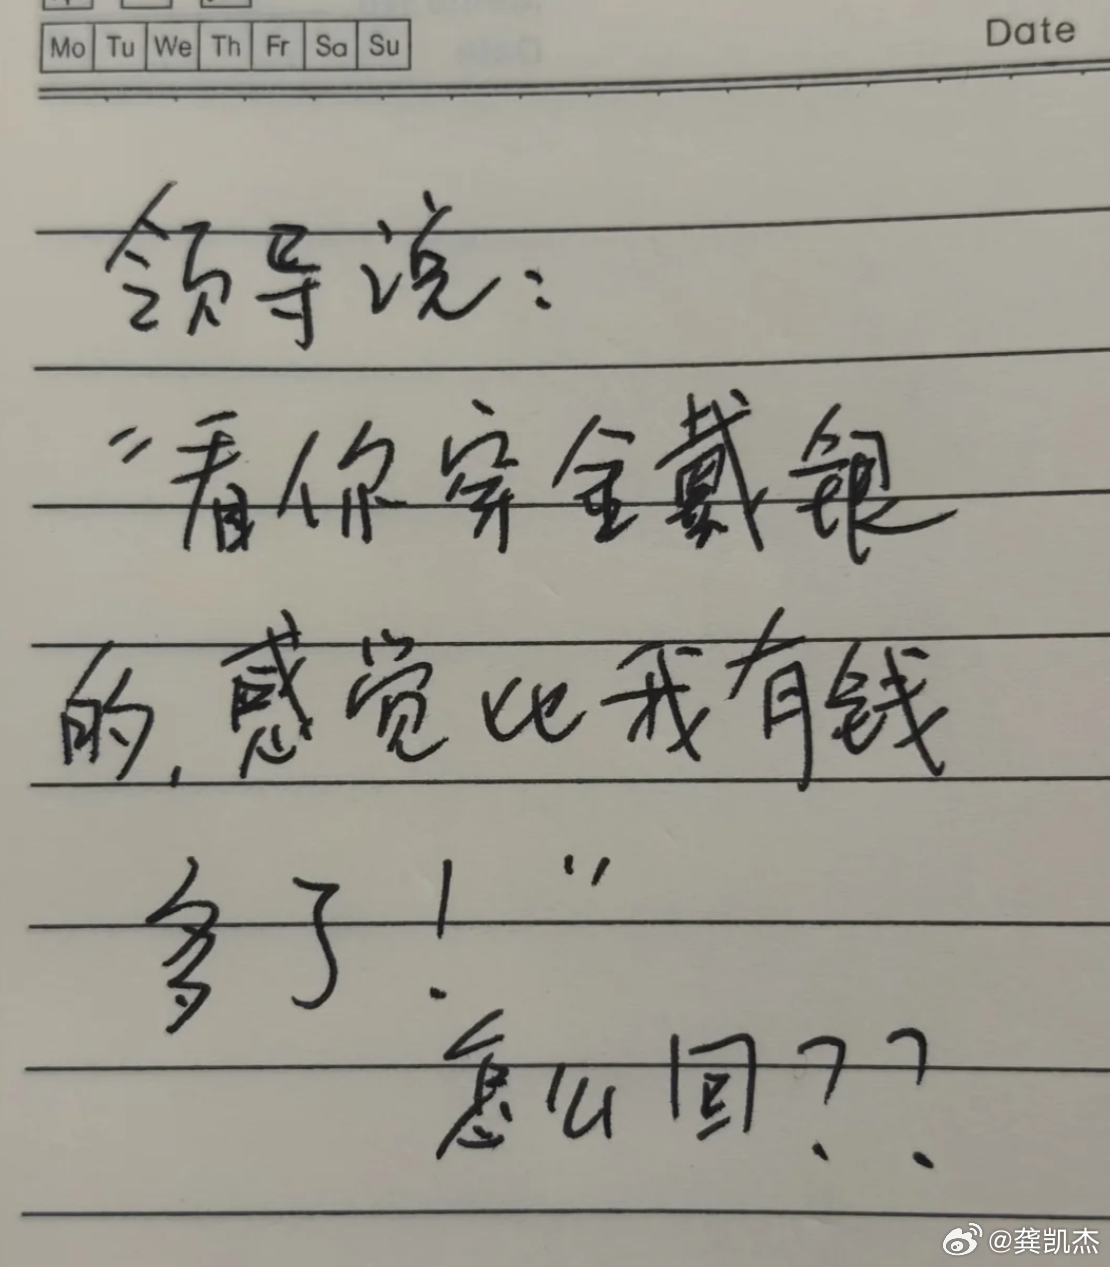 Mo Tu We Th Fr Sa Su
Date
领导说：
“看你穿金戴银
的，感觉比我有钱
多了！”
怎么回？？
@龚凯杰